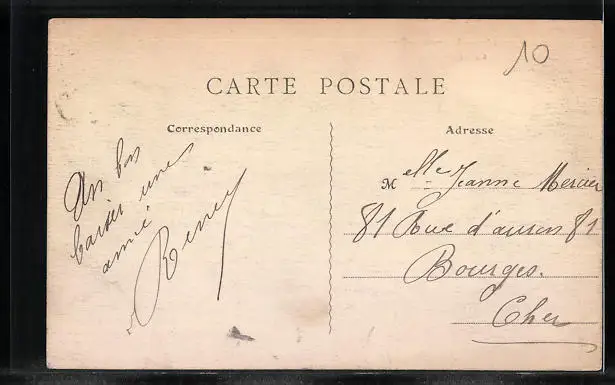 10
CARTE POSTALE
Correspondance
Adresse
Un bon
baiser une
amie
Renée
Melle Jeanne Mercier
81 Rue d'auron 81
Bourges.
Cher